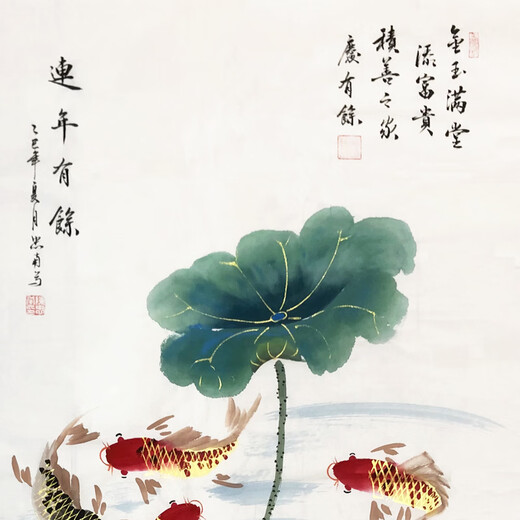 金玉满堂
添富貴
積善之家
慶有餘
連年有餘
乙巳年夏月忠舟写